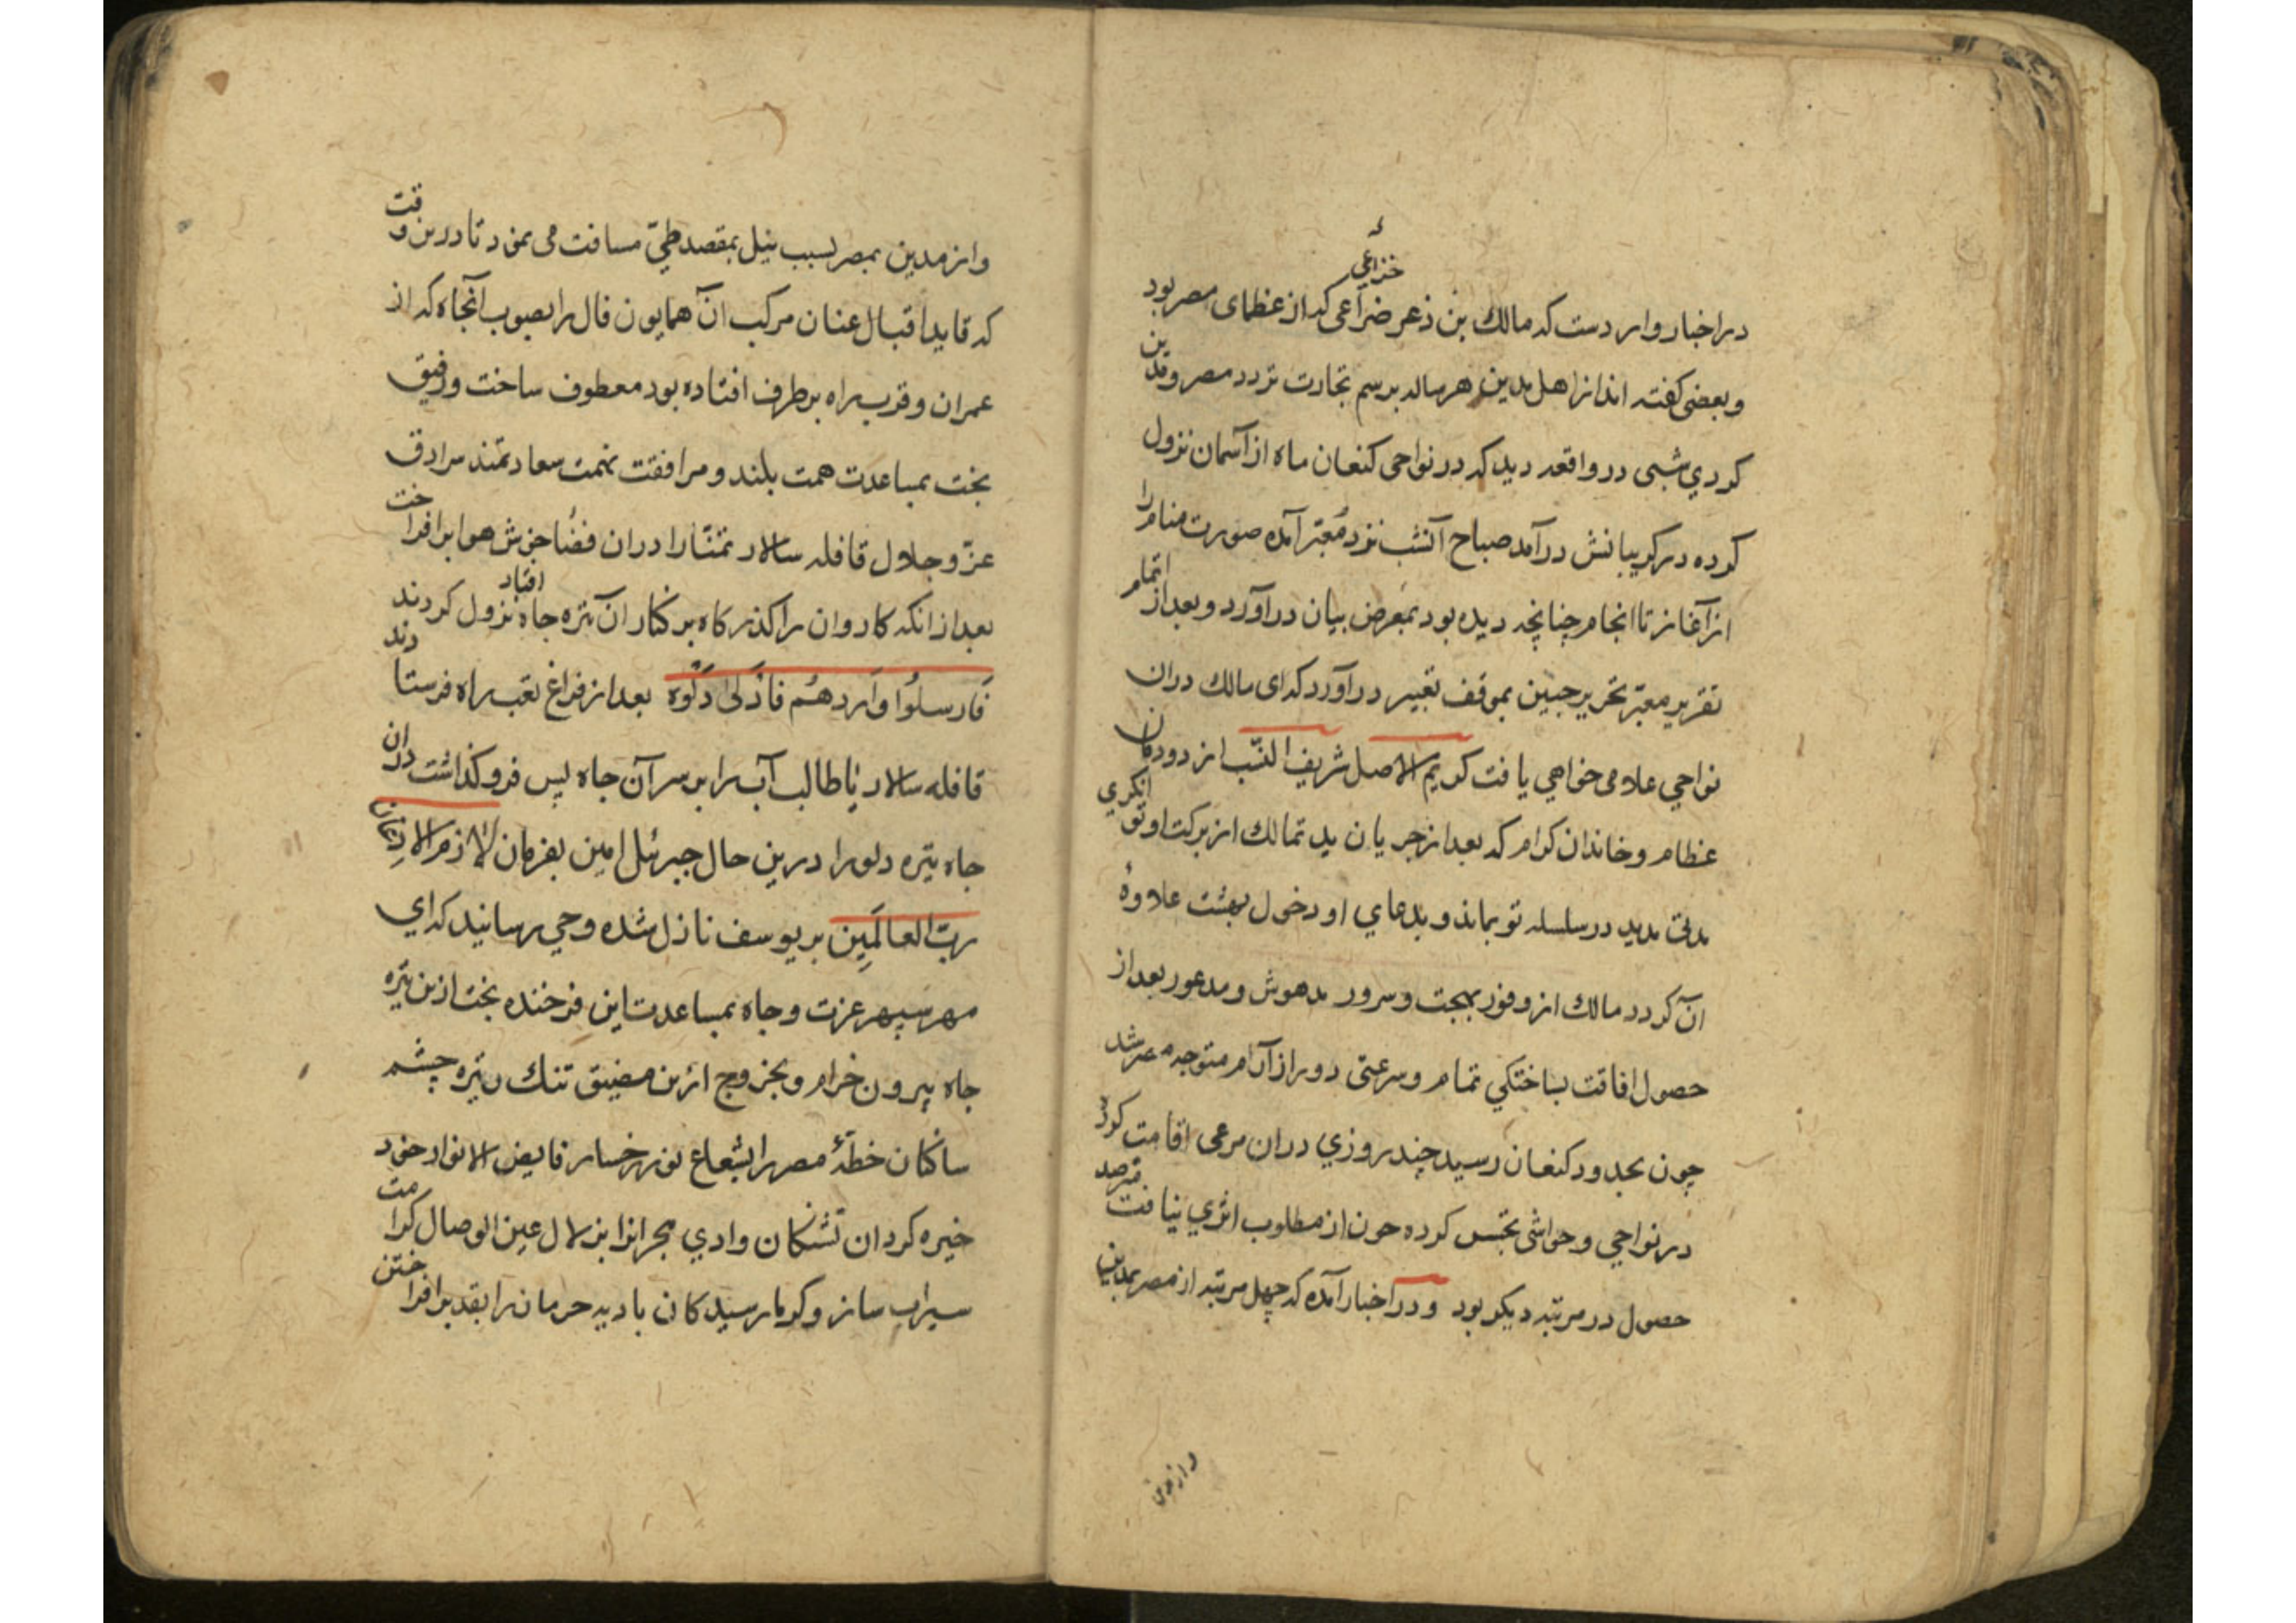 خزاعی
در اخبار واردست که مالک بن ذعر ضراعی که از عظمای مصر بود
و بعضی گفته اند از اهل مدین هر ساله برسم تجارت تردد مصر و مدین
کردی شبی در واقعه دید که در نواحی کنعان ماه از آسمان نزول
کرده در گریبانش درآمد صباح آنشب نزد معبّر آمده صورت منام را
از آغاز تا انجام چنانچه دیده بود بمعرض بیان درآورد و بعد از اتمام
تقریر معبّر تحریر جبین بموقف تعبیر درآورد که ای مالک دران
نواحی غلامی خواهی یافت کریم الاصل شریف النسب از دودمان
عظام و خاندان کرام که بعد از جریان ید تمالک از برکت او تونگری
مدتی مدید در سلسله تو بماند و بدعای او دخول بهشت علاوهٔ
آن گردد مالک از وفور بهجت و سرور مدهوش و مدعور بعد از
حصول افاقت بساختگی تمام و سرعتی دور از آرام متوجه مصر شد
چون بحدود کنعان رسید چند روزی دران مرعی اقامت کرد
در نواحی و حواشی تجسس کرده چون از مطلوب اثری نیافت مترصد
حصول در مرتبه دیگر بود و در اخبار آمده که چهل مرتبه از مصر بمدین
و از مدین
و از مدین بمصر بسبب نیل بمقصد طیّ مسافت می نمود تا درین وقت
که قاید اقبال عنان مرکب آن همایون فال را بصوب آنجاه که از
عمران و قرب راه بر طرف افتاده بود معطوف ساخت و رفیق
بخت بمساعدت همت بلند و مرافقت نهمت سعادتمند سرادق
عزّ و جلال قافله سالار تمنّا را دران فضا خوش هوا برافراخت
بعد از انکه کاروان را گذر گاه بر کنار آن تیره چاه افتاد نزول کردند
فَارسلُوا وَاردهُم فاَدلی دَلْوه بعد از فراغ تعب راه فرستادند
قافله سالار با طالب آب را بر سر آن چاه پس فرو گذاشت دران
چاه تیره دلو را درین حال جبرئل امین بفرمان لازم الاذعان
ربّ العالَمِین بر یوسف نازل شده وحی رسانید که ای
مهر سپهر عزت و جاه بمساعدت این فرخنده بخت ازین تیره
چاه بیرون خرام و بخروج ازین مضیق تنک و تیره چشم
ساکنان خطّهٔ مصر را بشعاع نور رخسار فایض الانوار خود
خیره گردان تشنگان وادی هجرانرا بزلال عین الوصال کرامت
سیراب ساز و گرما رسیدگان بادیه حرمان را بقد برافراختن